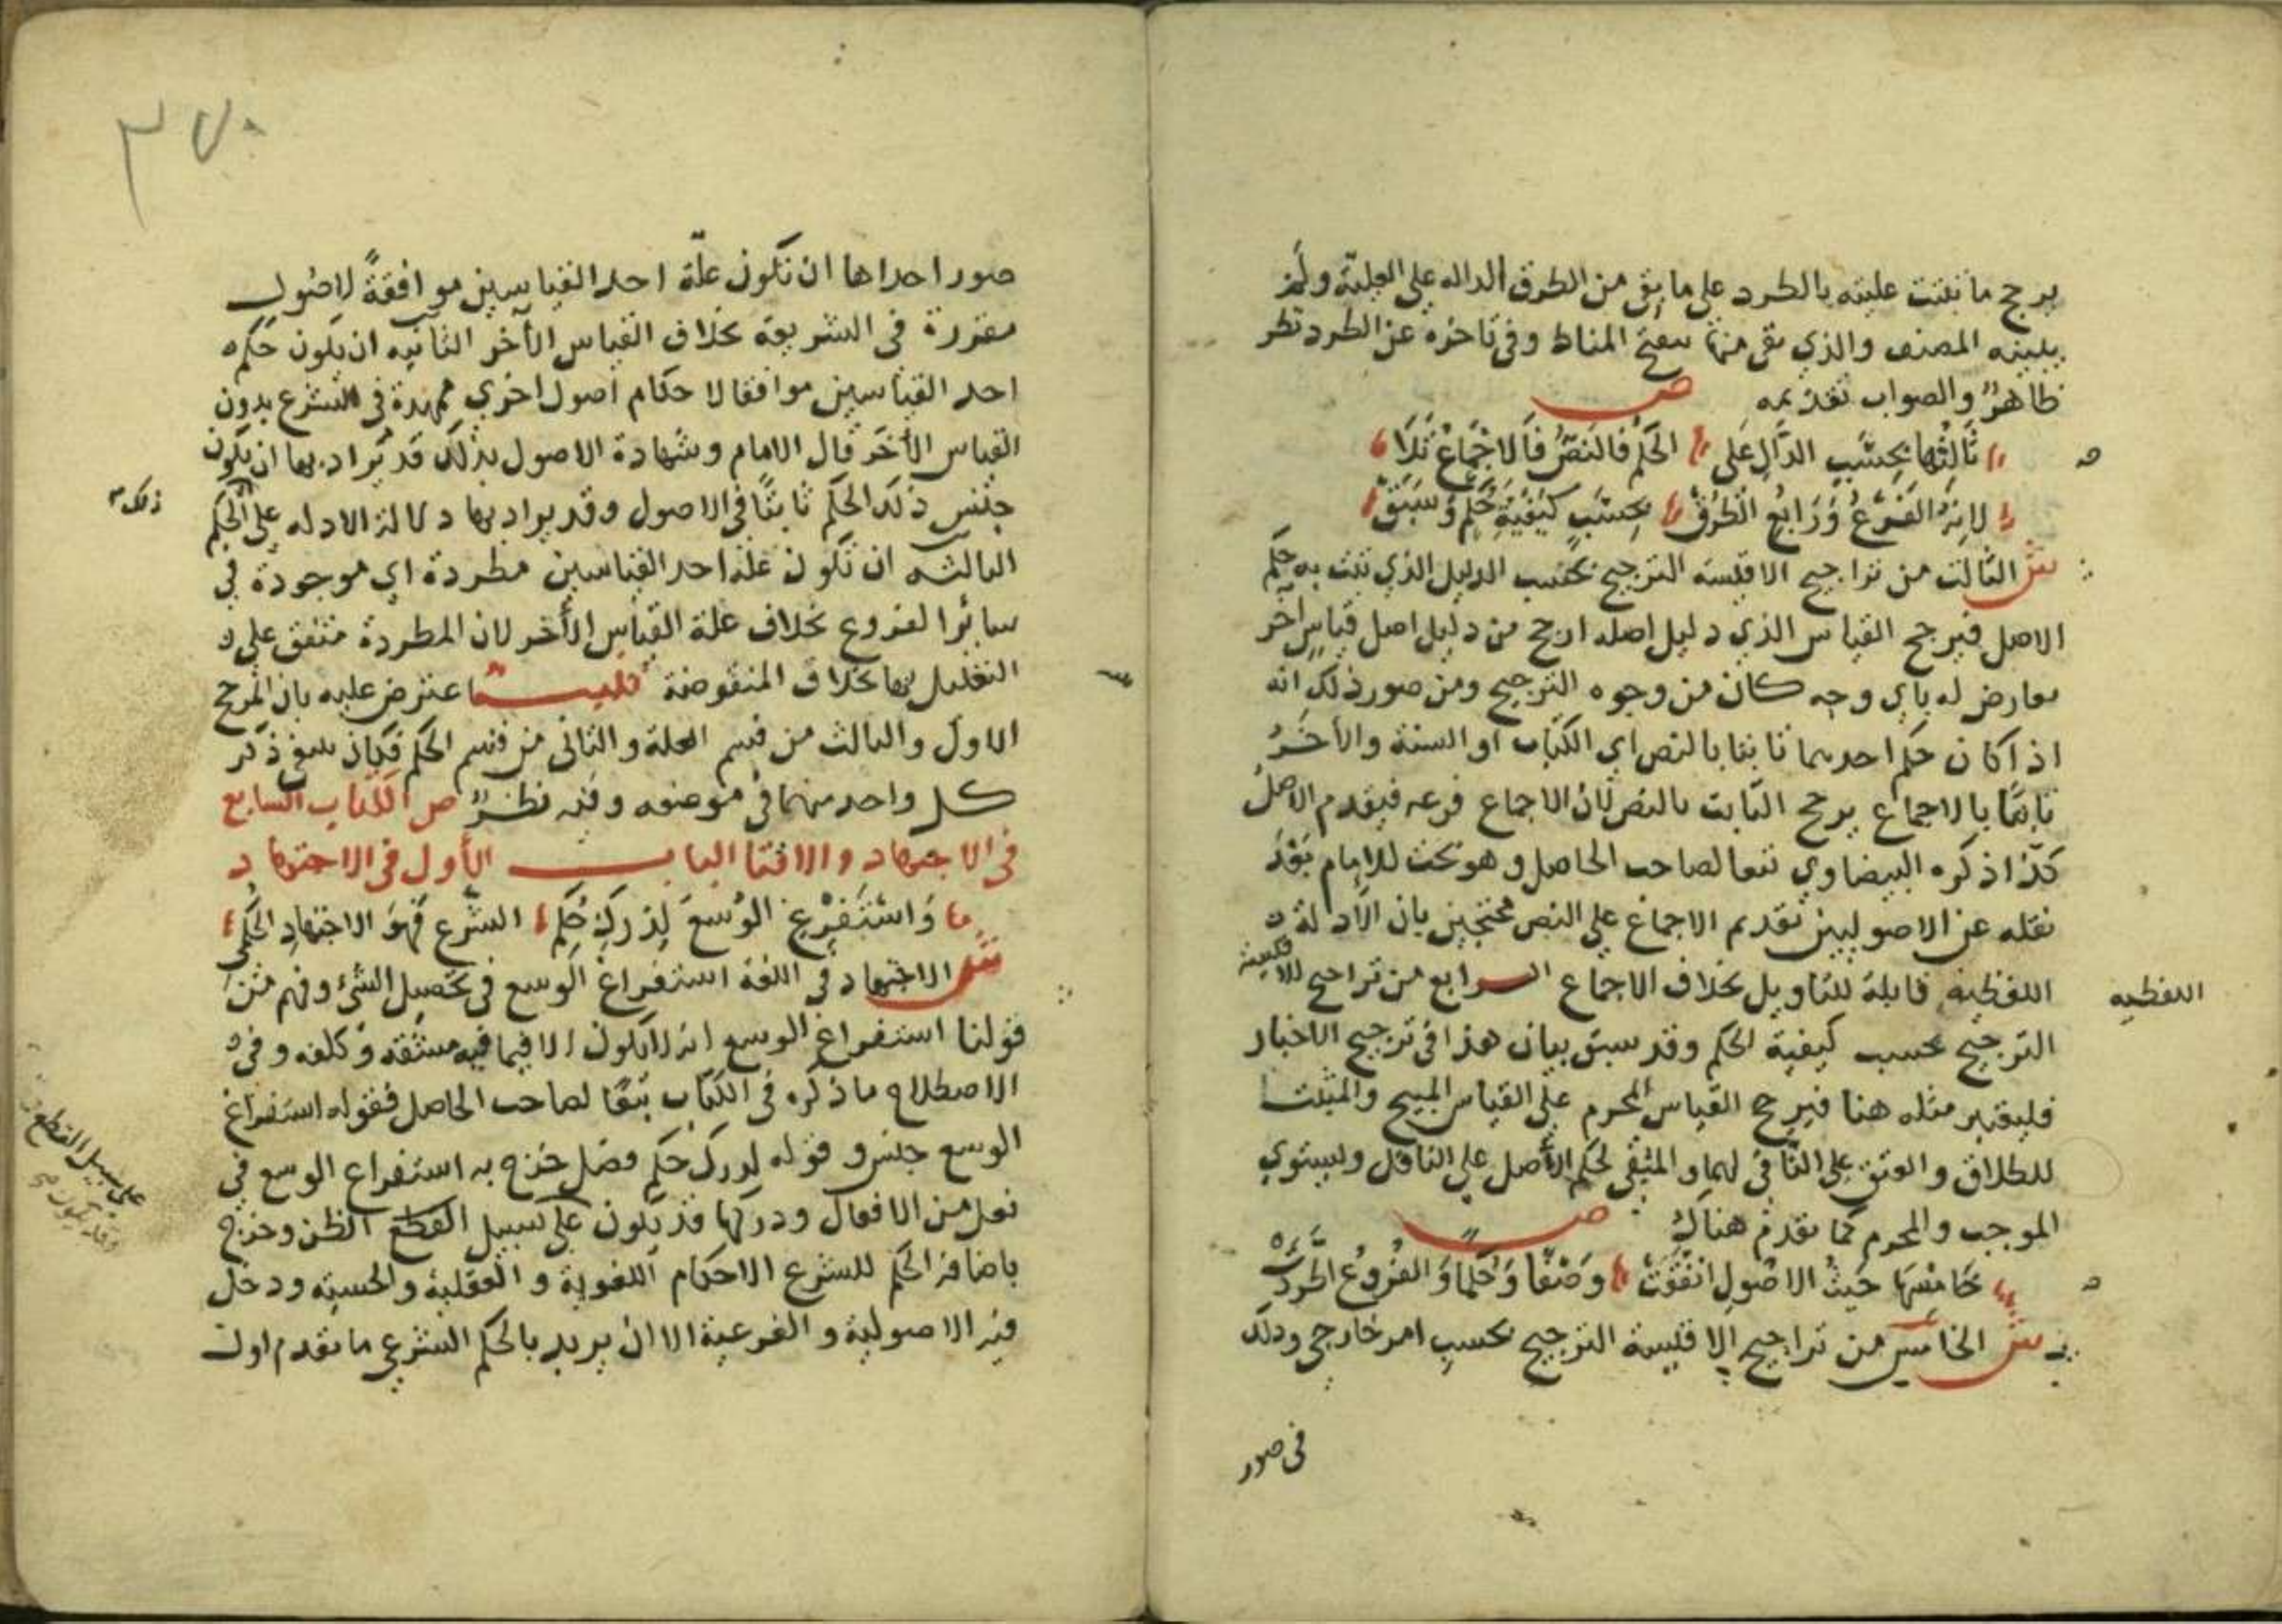 يرجح ما ثبتت عليته بالطرد على ما بقى من الطرق الداله على العلية ولم
يبينه المصنف والذي بقى منها تنقيح المناط وفى تاخره عن الطرد نظر
ظاهر والصواب تقديمه ص
ثَالِثُهَا بِحَسَبِ الدَّالِ عَلَى الحُكْمِ فَالنَصُّ فَالاجْمَاعُ تَلَا
لِانِهُ الفَرْعُ وَرَابِعُ الطُرُقْ بِحَسَبِ كَيْفِيَّةِ حُكْمٍ وَسَبَقْ
ش الثالث من تراجيح الاقيسه الترجيح بحسب الدليل الذي ثبت به حكم
الاصل فيرجح القياس الذي دليل اصله ارجح من دليل اصل قياس آخر
معارض له باي وجه كان من وجوه الترجيح ومن صور ذلك انه
اذا كان حكم احدهما ثابتا بالنص اي الكتاب او السنة والأخَرُ
ثابتًا بالاجماع يرجح الثابت بالنص لان الاجماع فرعه فيقدم الاصل
كذا ذكره البيضاوي تبعا لصاحب الحاصل وهو بحث للامام بَعْدَ
نقله عن الاصوليين تقديم الاجماع على النص محتجين بان الأدلة
اللفظية قابلة للتاويل بخلاف الاجماع الرابع من تراجيح الاقيسة
اللفظيه
الترجيح بحسب كيفية الحكم وقد سبق بيان هذا فى ترجيح الاخبار
فليعتبر مثله هنا فيرجح القياس المحرم على القياس المبيح والمثبت
للطلاق والعتق على النافي لهما والمبقي لحكم الأصل على الناقل ويستوي
الموجب والمحرم كما تقدم هناك ص
خَامسُهَا حَيثُ الاصُولِ اتفَقَتْ وَصْفًا وَحُكمًا وَالفُرُوعُ اطَّرَدَتْ
ش الخامس من تراجيح الاقيسة الترجيح بحسب امر خارجي وذلك
فى صور
٣٧٠
صور احداها ان تكون علّة احد القياسين موافقةً لاصُول
مقررة فى الشريعة بخلاف القياس الآخر الثانيه ان يكون حكم
احد القياسين موافقا لاحكام اصول اخري ممهدة فى الشرع بدون
القياس الأخر قال الامام وشهادة الاصول بذلك قد يُراد بها ان يكون
جنس ذلك الحكم ثابتًا فى الاصول وقد يراد بها دلالة الادله على الحكم
ذلك
الثالثه ان تكون علة احد القياسين مطردة اي موجودة في
سائر الفروع بخلاف علة القياس الأخر لان المطردة متفق على
التعليل بها بخلاف المنقوضة تنبيه اعترض عليه بان المرجح
الاول والثالث من قسم العلة والثانى من قسم الحكم فكان ينبغي ذكر
كل واحد منهما فى موضعه وفيه نظرٌ ص الكتاب السابع
فى الاجتهاد والافتا الباب الأول فى الاجتهاد
وَاسْتَفْرِغِ الوُسعَ لِدَرْكِ حُكْمِ الشَّرع فَهوَ الاجتهادِ الحُكْمِى
ش الاجتهاد فى اللغة استفراغ الوسع فى تحصيل الشئ وفهم من
قولنا استفراغ الوسع انه لا يكون الا فيما فيه مشقه وكلفه وفي
الاصطلاح ما ذكره فى الكتاب تبعًا لصاحب الحاصل فقوله استفراغ
الوسع جنس وقوله لدرك حكم فصل خرج به استفراغ الوسع في
فعل من الافعال ودركها قد يكون على سبيل القطع الظن وخرج
على سبيل القطع
وقد يكون
باضافة الحكم للشرع الاحكام اللغوية والعقلية والحسيه ودخل
فيه الاصولية والفرعية الا ان يريد بالحكم الشرعي ما تقدم اول